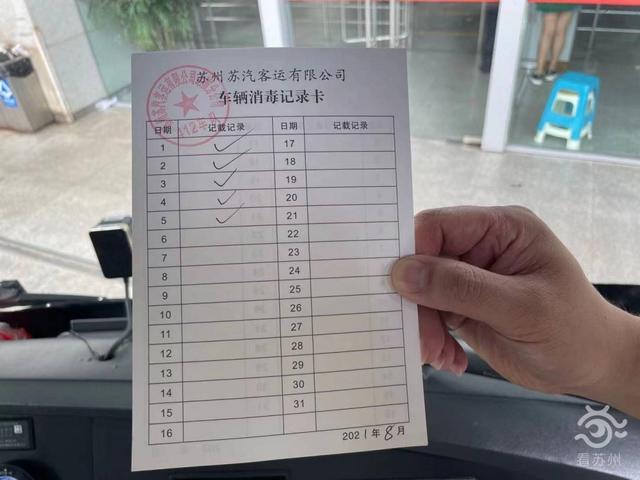 苏州苏汽客运有限公司
车辆消毒记录卡
日期 记载记录 日期 记载记录
1 ✓ 17
2 ✓ 18
3 ✓ 19
4 ✓ 20
5 ✓ 21
6 22
7 23
8 24
9 25
10 26
11 27
12 28
13 29
14 30
15 31
16
2021年8月
看苏州